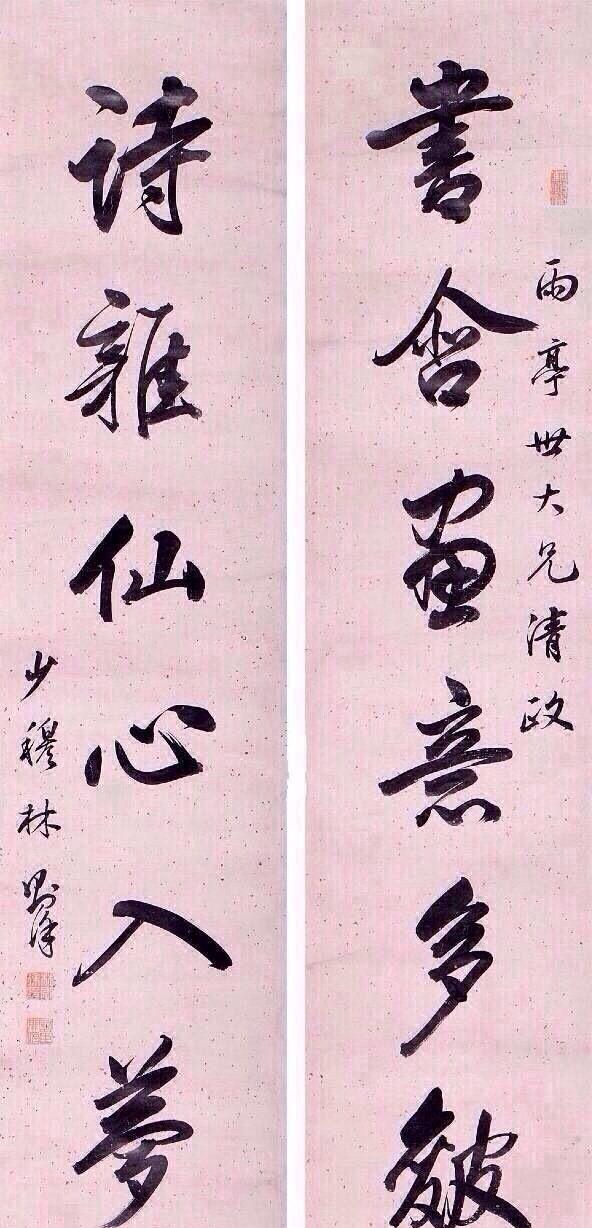 雨亭世大兄清政
書含畫意多
詩雜仙心入夢
少穆林則徐